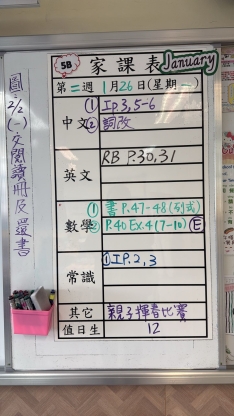 5B 家課表 January
第二週 1月26日(星期一)
中文
① IP.3,5-6
② 詞改
英文
RB P.30,31
數學
① 書 P.47-48(列式)
② P.40 Ex.4(7-10) E
常識
① IP.2,3
其它
親子揮春比賽
值日生
12
圖: 2/2(一)交閱讀冊及還書